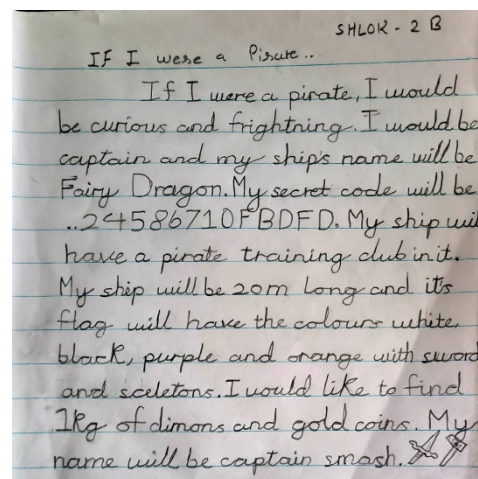 SHLOK - 2 B
If I were a Pirate..
If I were a pirate, I would
be curious and frightning. I would be
captain and my ship's name will be
Fairy Dragon. My secret code will be
..24586710FBDFD. My ship will
have a pirate training club in it.
My ship will be 20m long and its
flag will have the colours white,
black, purple and orange with sword
and sceletons. I would like to find
1Kg of dimons and gold coins. My
name will be captain smash.